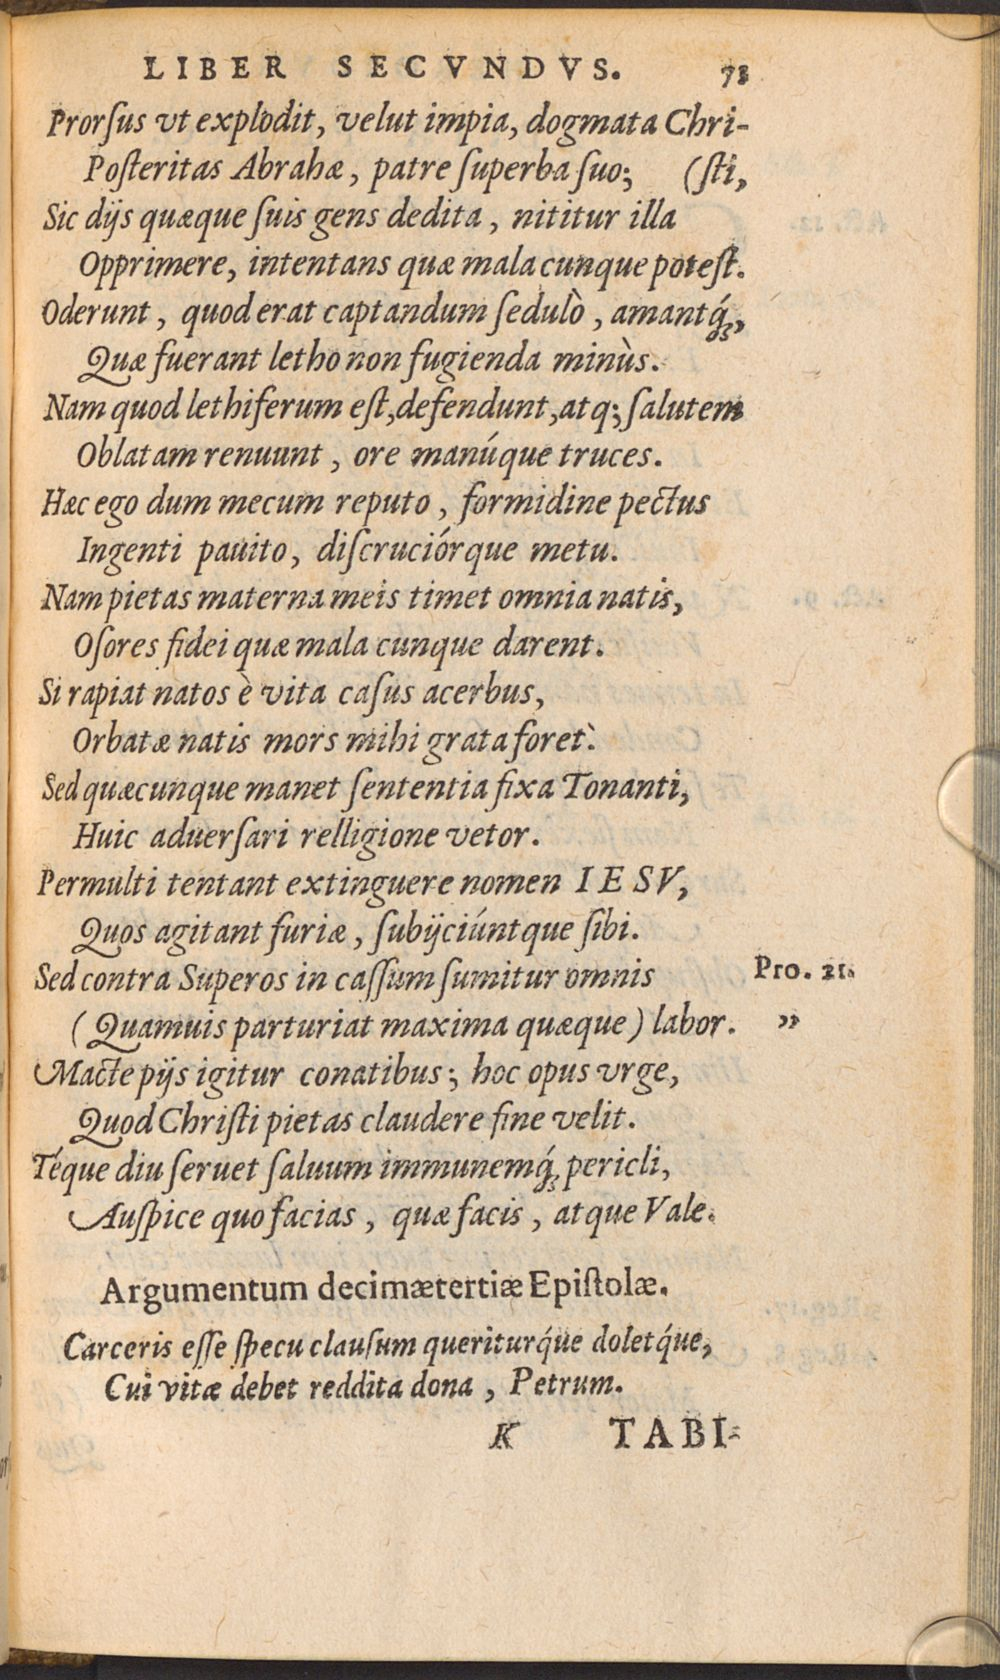 LIBER SECVNDVS. 73
Prorſus vt explodit, velut impia, dogmata Chri-
Poſteritas Abrahæ, patre ſuperba ſuo; (ſti,
Sic dijs quæque ſuis gens dedita, nititur illa
Opprimere, intentans quæ mala cunque poteſt.
Oderunt, quod erat captandum ſedulò, amantq́;,
Quæ fuerant letho non fugienda minùs.
Nam quod lethiferum eſt, defendunt, atq; ſalutem
Oblatam renuunt, ore manúque truces.
Hæc ego dum mecum reputo, formidine pectus
Ingenti pauito, diſcruciórque metu.
Nam pietas materna meis timet omnia natis,
Oſores fidei quæ mala cunque darent.
Si rapiat natos è vita caſus acerbus,
Orbatæ natis mors mihi grata foret.
Sed quæcunque manet ſententia fixa Tonanti,
Huic aduerſari relligione vetor.
Permulti tentant extinguere nomen IESV,
Quos agitant furiæ, ſubijciúntque ſibi.
Sed contra Superos in caſſum ſumitur omnis Pro. 21.
(Quamuis parturiat maxima quæque) labor. ”
Macte pijs igitur conatibus; hoc opus vrge,
Quod Chriſti pietas claudere fine velit.
Téque diu ſeruet ſaluum immunemq́; pericli,
Auſpice quo facias, quæ facis, atque Vale.
Argumentum decimætertiæ Epiſtolæ.
Carceris eſſe ſpecu clauſum queriturq́ue doletq́ue,
Cui vitæ debet reddita dona, Petrum.
K TABI-